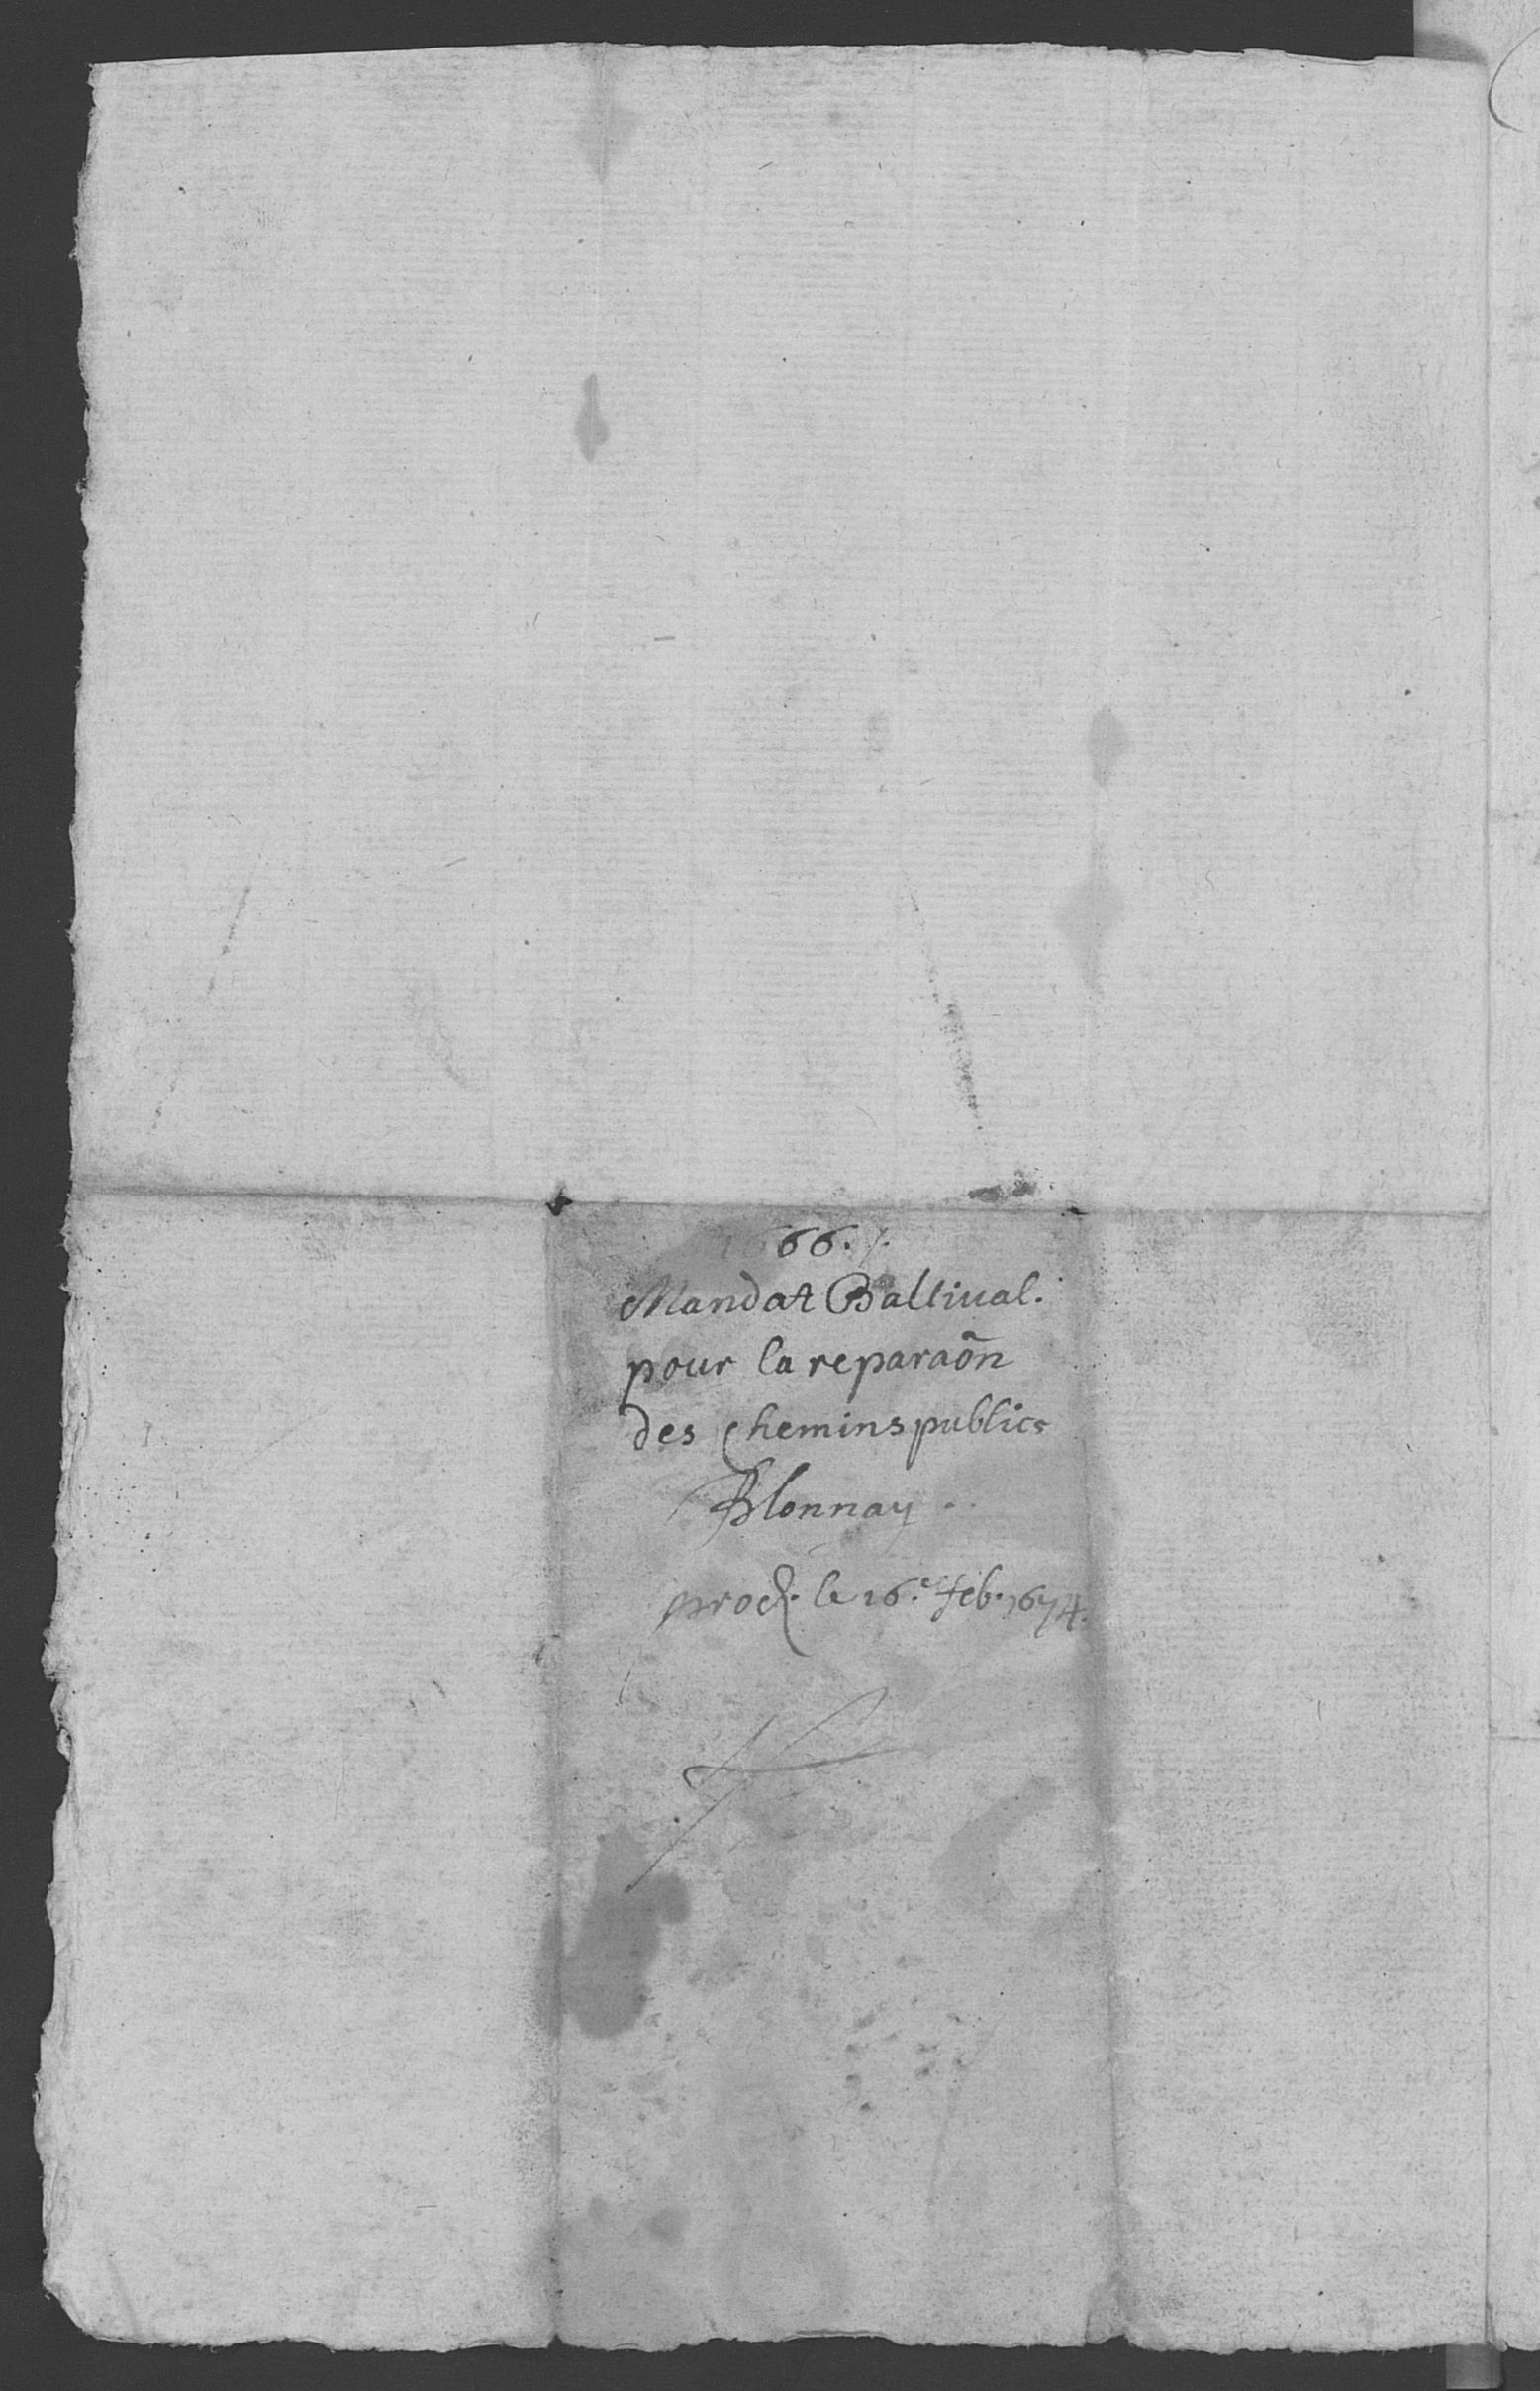 1666.
Mandat Balliual.
pour la reparaõn
des chemins publics
Blonnay
prod. le 16.e feb. 1674.